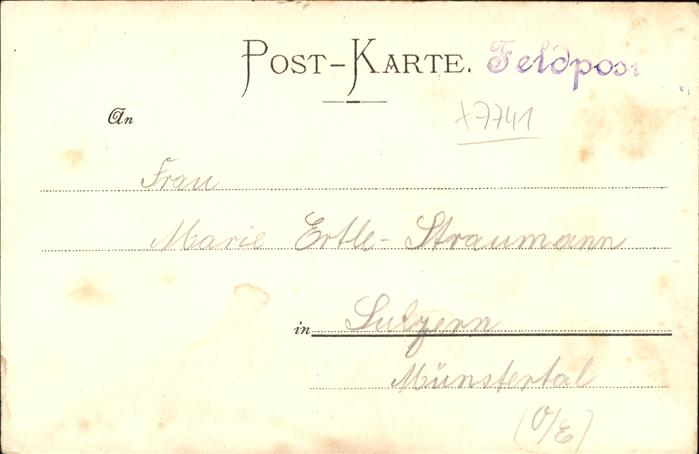 POST-KARTE. Feldpost
An
x7741
Frau
Marie Ertle-Straumann
in Sulzern
Münstertal
(O/E)